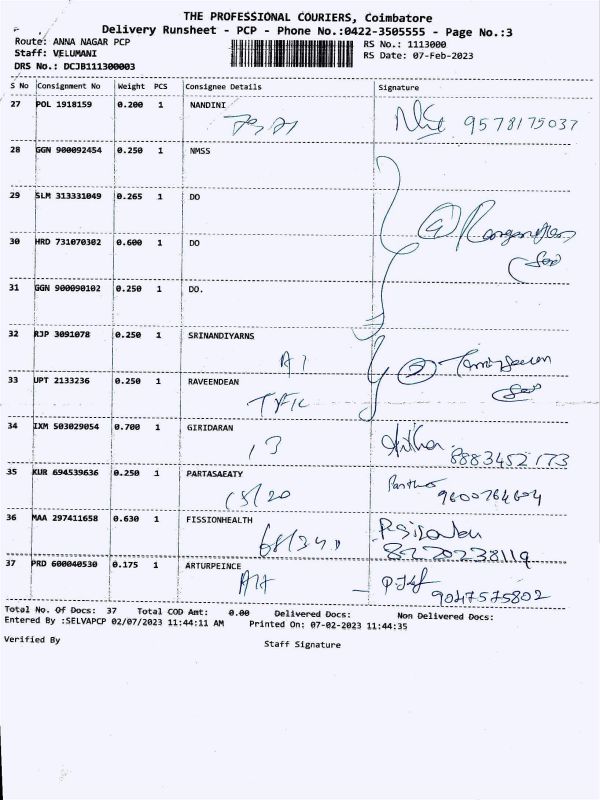 THE PROFESSIONAL COURIERS, Coimbatore
Delivery Runsheet - PCP - Phone No.:0422-3505555 - Page No.:3
Route: ANNA NAGAR PCP
RS No.: 1113000
Staff: VELUMANI
RS Date: 07-Feb-2023
DRS No.: DCJB111300003
S No Consignment No Weight PCS Consignee Details Signature
27 POL 1918159 0.200 1 NANDINI
9578175037
28 GGN 900092454 0.250 1 NMSS
29 SLM 313331049 0.265 1 DO
30 HRD 731070302 0.600 1 DO
31 GGN 900090102 0.250 1 DO.
32 RJP 3091078 0.250 1 SRINANDIYARNS
A1
33 UPT 2133236 0.250 1 RAVEENDEAN
34 IXM 503029054 0.700 1 GIRIDARAN
13 8883452173
35 KUR 694539636 0.250 1 PARTASAEATY
15/20 9600764604
36 MAA 297411658 0.630 1 FISSIONHEALTH
8220238119
37 PRD 600040530 0.175 1 ARTURPEINCE
9047575802
Total No. Of Docs: 37 Total COD Amt: 0.00 Delivered Docs: Non Delivered Docs:
Entered By :SELVAPCP 02/07/2023 11:44:11 AM Printed On: 07-02-2023 11:44:35
Verified By Staff Signature